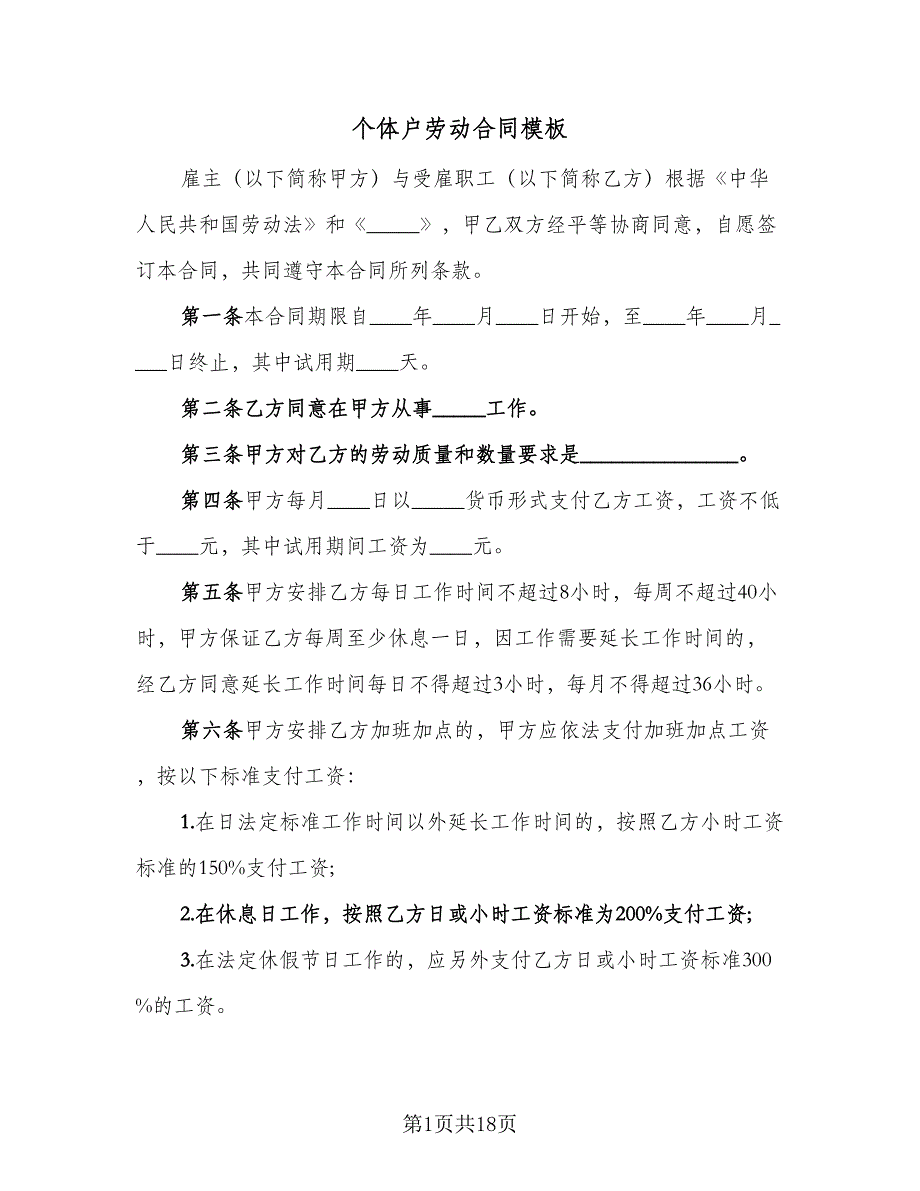 个体户劳动合同模板
雇主（以下简称甲方）与受雇职工（以下简称乙方）根据《中华
人民共和国劳动法》和《_____》，甲乙双方经平等协商同意，自愿签
订本合同，共同遵守本合同所列条款。
第一条本合同期限自____年____月____日开始，至____年____月_
___日终止，其中试用期____天。
第二条乙方同意在甲方从事_____工作。
第三条甲方对乙方的劳动质量和数量要求是_______________。
第四条甲方每月____日以_____货币形式支付乙方工资，工资不低
于____元，其中试用期间工资为____元。
第五条甲方安排乙方每日工作时间不超过8小时，每周不超过40小
时，甲方保证乙方每周至少休息一日，因工作需要延长工作时间的，
经乙方同意延长工作时间每日不得超过3小时，每月不得超过36小时。
第六条甲方安排乙方加班加点的，甲方应依法支付加班加点工资
，按以下标准支付工资：
1.在日法定标准工作时间以外延长工作时间的，按照乙方小时工资
标准的150%支付工资;
2.在休息日工作，按照乙方日或小时工资标准为200%支付工资;
3.在法定休假节日工作的，应另外支付乙方日或小时工资标准300
%的工资。
第1页共18页